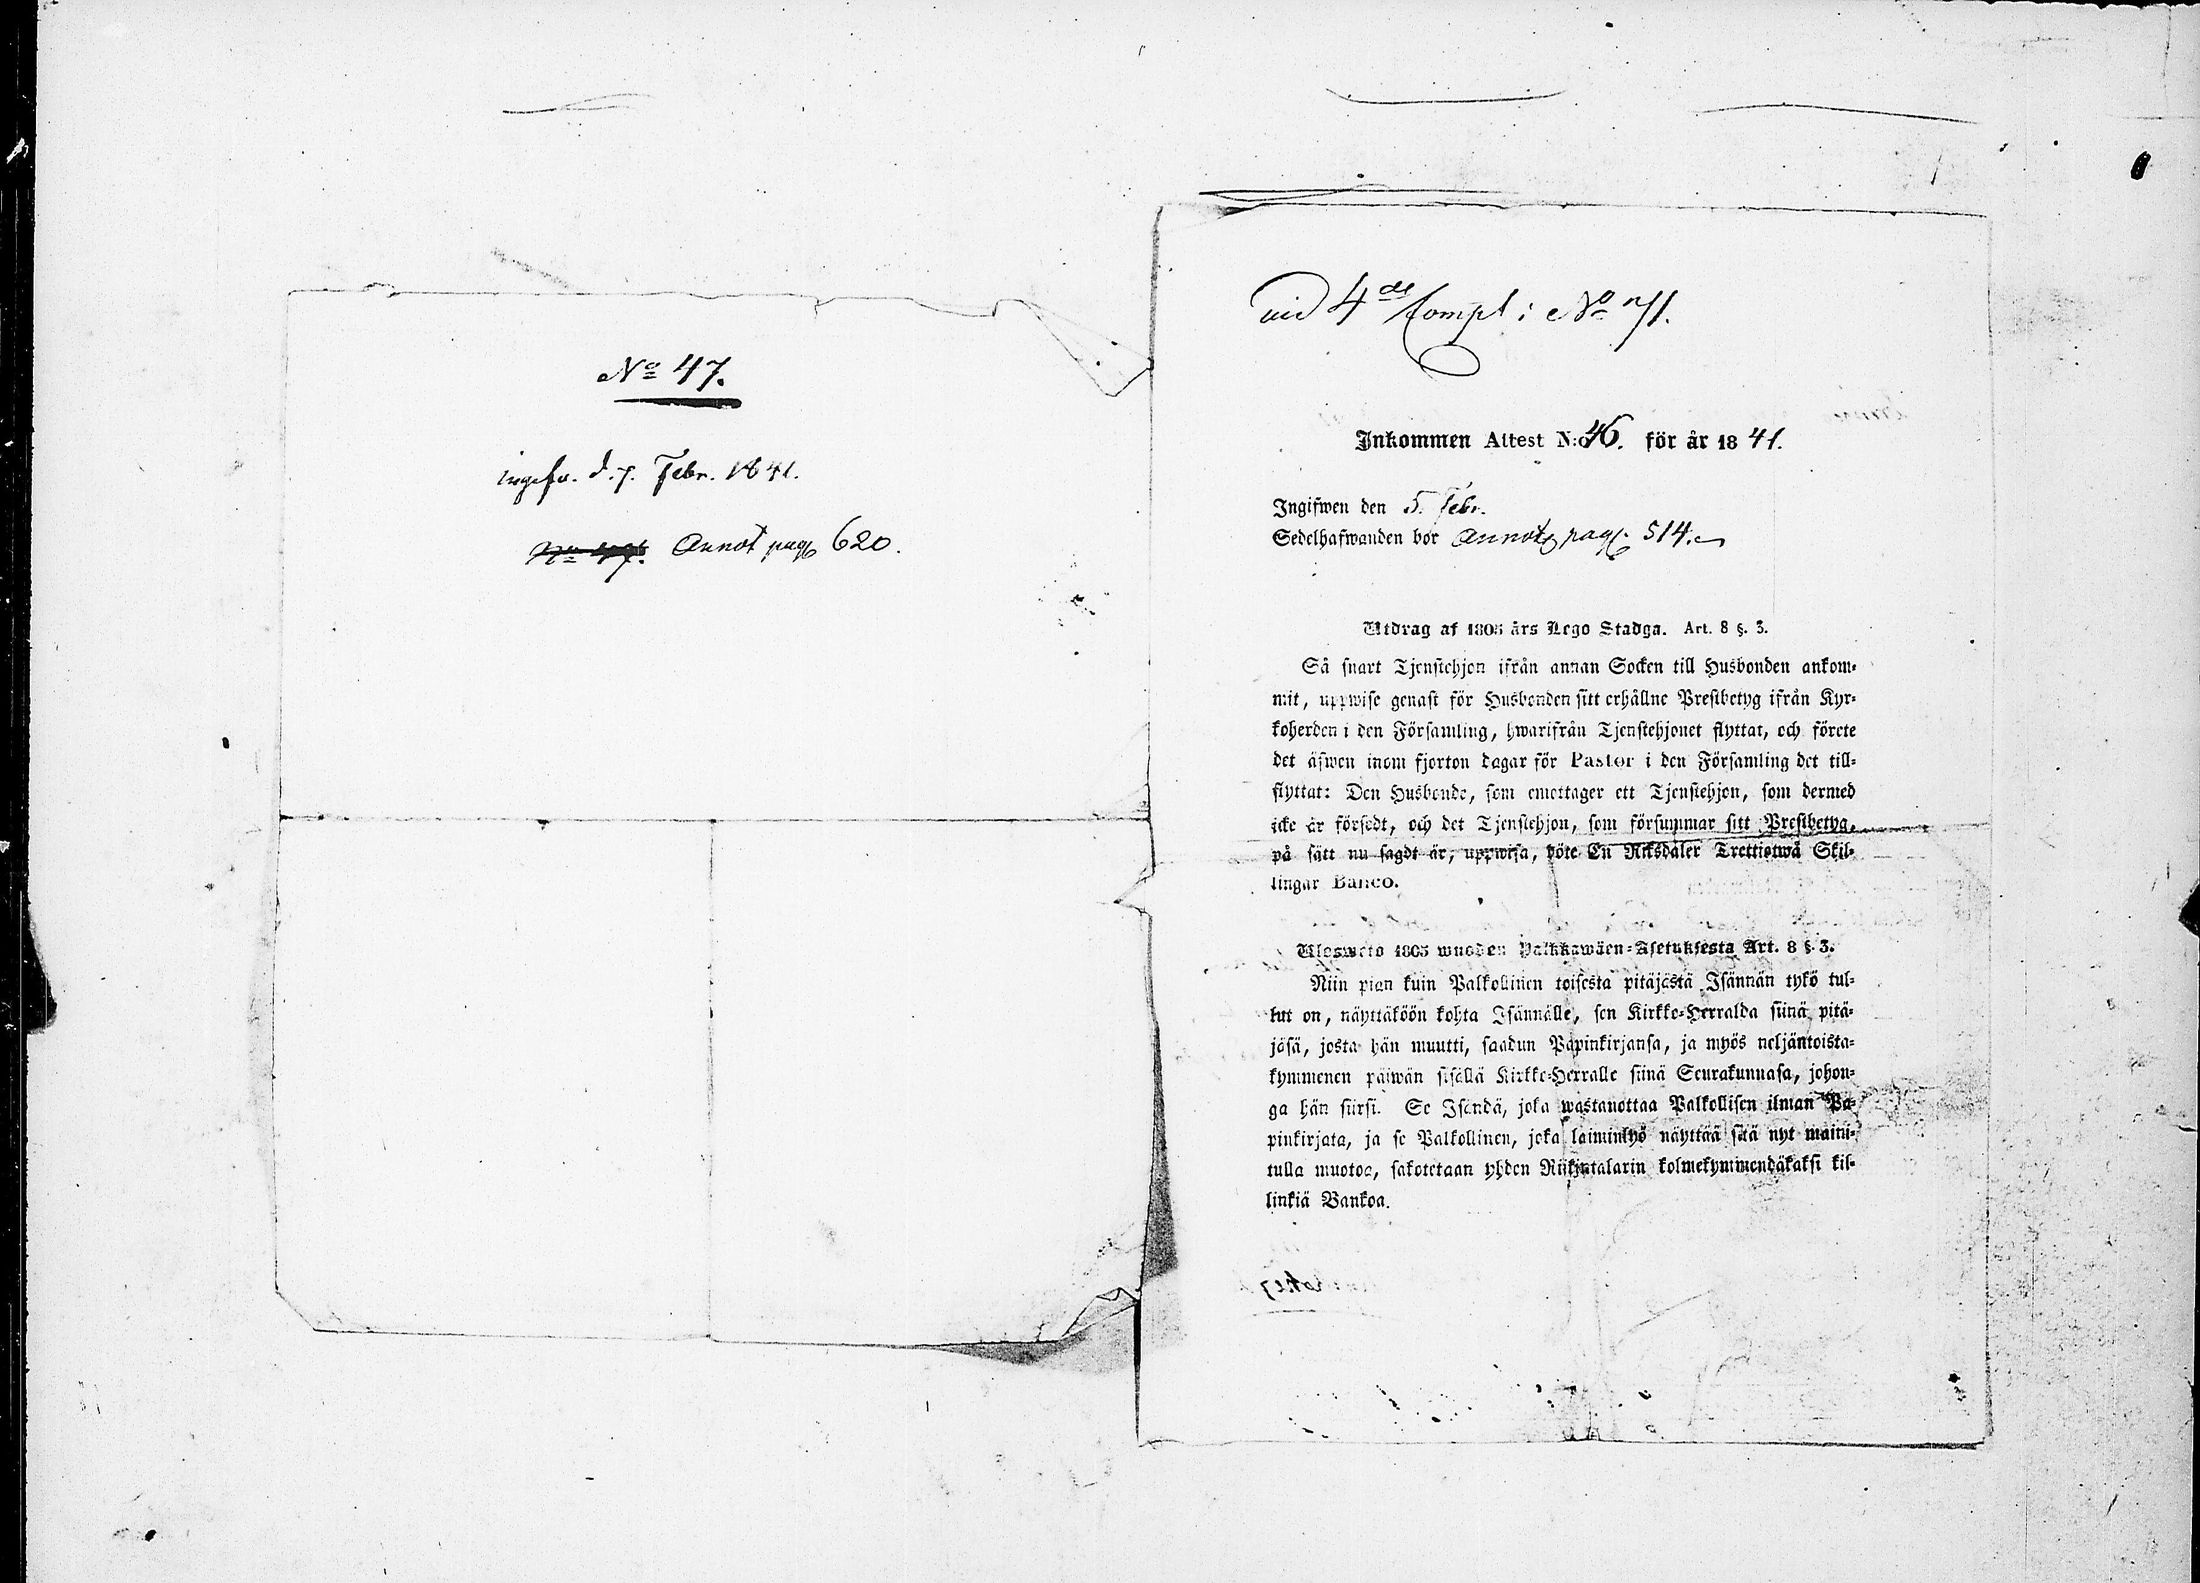 No 47.
ingifv. d. 7. Febr. 1841.
Annot pag 620.
vid 4de Compl: No 71.
Inkommen Attest N:o 46. för år 1841.
Ingifwen den 5. Febr.
Sedelhafwanden bor Annot. pag. 514.
Utdrag af 1805 års Lego Stadga. Art. 8 §. 3.
Så snart Tjenstehjon ifrån annan Socken till Husbonden ankom-
mit, uppwise genast för Husbonden sitt erhållne Prestbetyg ifrån Kyr-
koherden i den Församling, hwarifrån Tjenstehjonet flyttat, och förete
det äfwen inom fjorton dagar för Pastor i den Församling det till-
flyttat: Den Husbonde, som emottager ett Tjenstehjon, som dermed
icke är försedt, och det Tjenstehjon, som försummar sitt Prestbetyg,
på sätt nu sagdt är, uppwisa, böte En Riksdaler Trettiotwå Skil-
lingar Banco.
Ulosweto 1805 wuoden Palkkawäen-Asetuksesta Art. 8 §. 3.
Niin pian kuin Palkollinen toisesta pitäjästä Isännän tykö tul-
lut on, näyttäköön kohta Isännälle, sen Kirkko-Herralda siinä pitä-
jäsä, josta hän muutti, saadun Papinkirjansa, ja myös neljäntoista-
kymmenen päiwän sisällä Kirkko-Herralle siinä Seurakunnasa, johon-
ga hän siirsi. Se Isändä, joka wastanottaa Palkollisen ilman Pa-
pinkirjata, ja se Palkollinen, joka laiminlyö näyttää sitä nyt maini-
tulla muotoa, sakotetaan yhden Riikintalarin kolmekymmendäkaksi kil-
linkiä Bankoa.